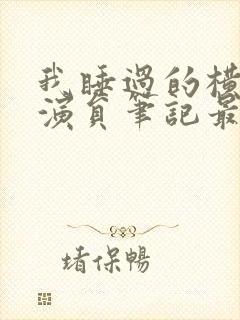 我睡過的橫
演員筆記最
堵保暢